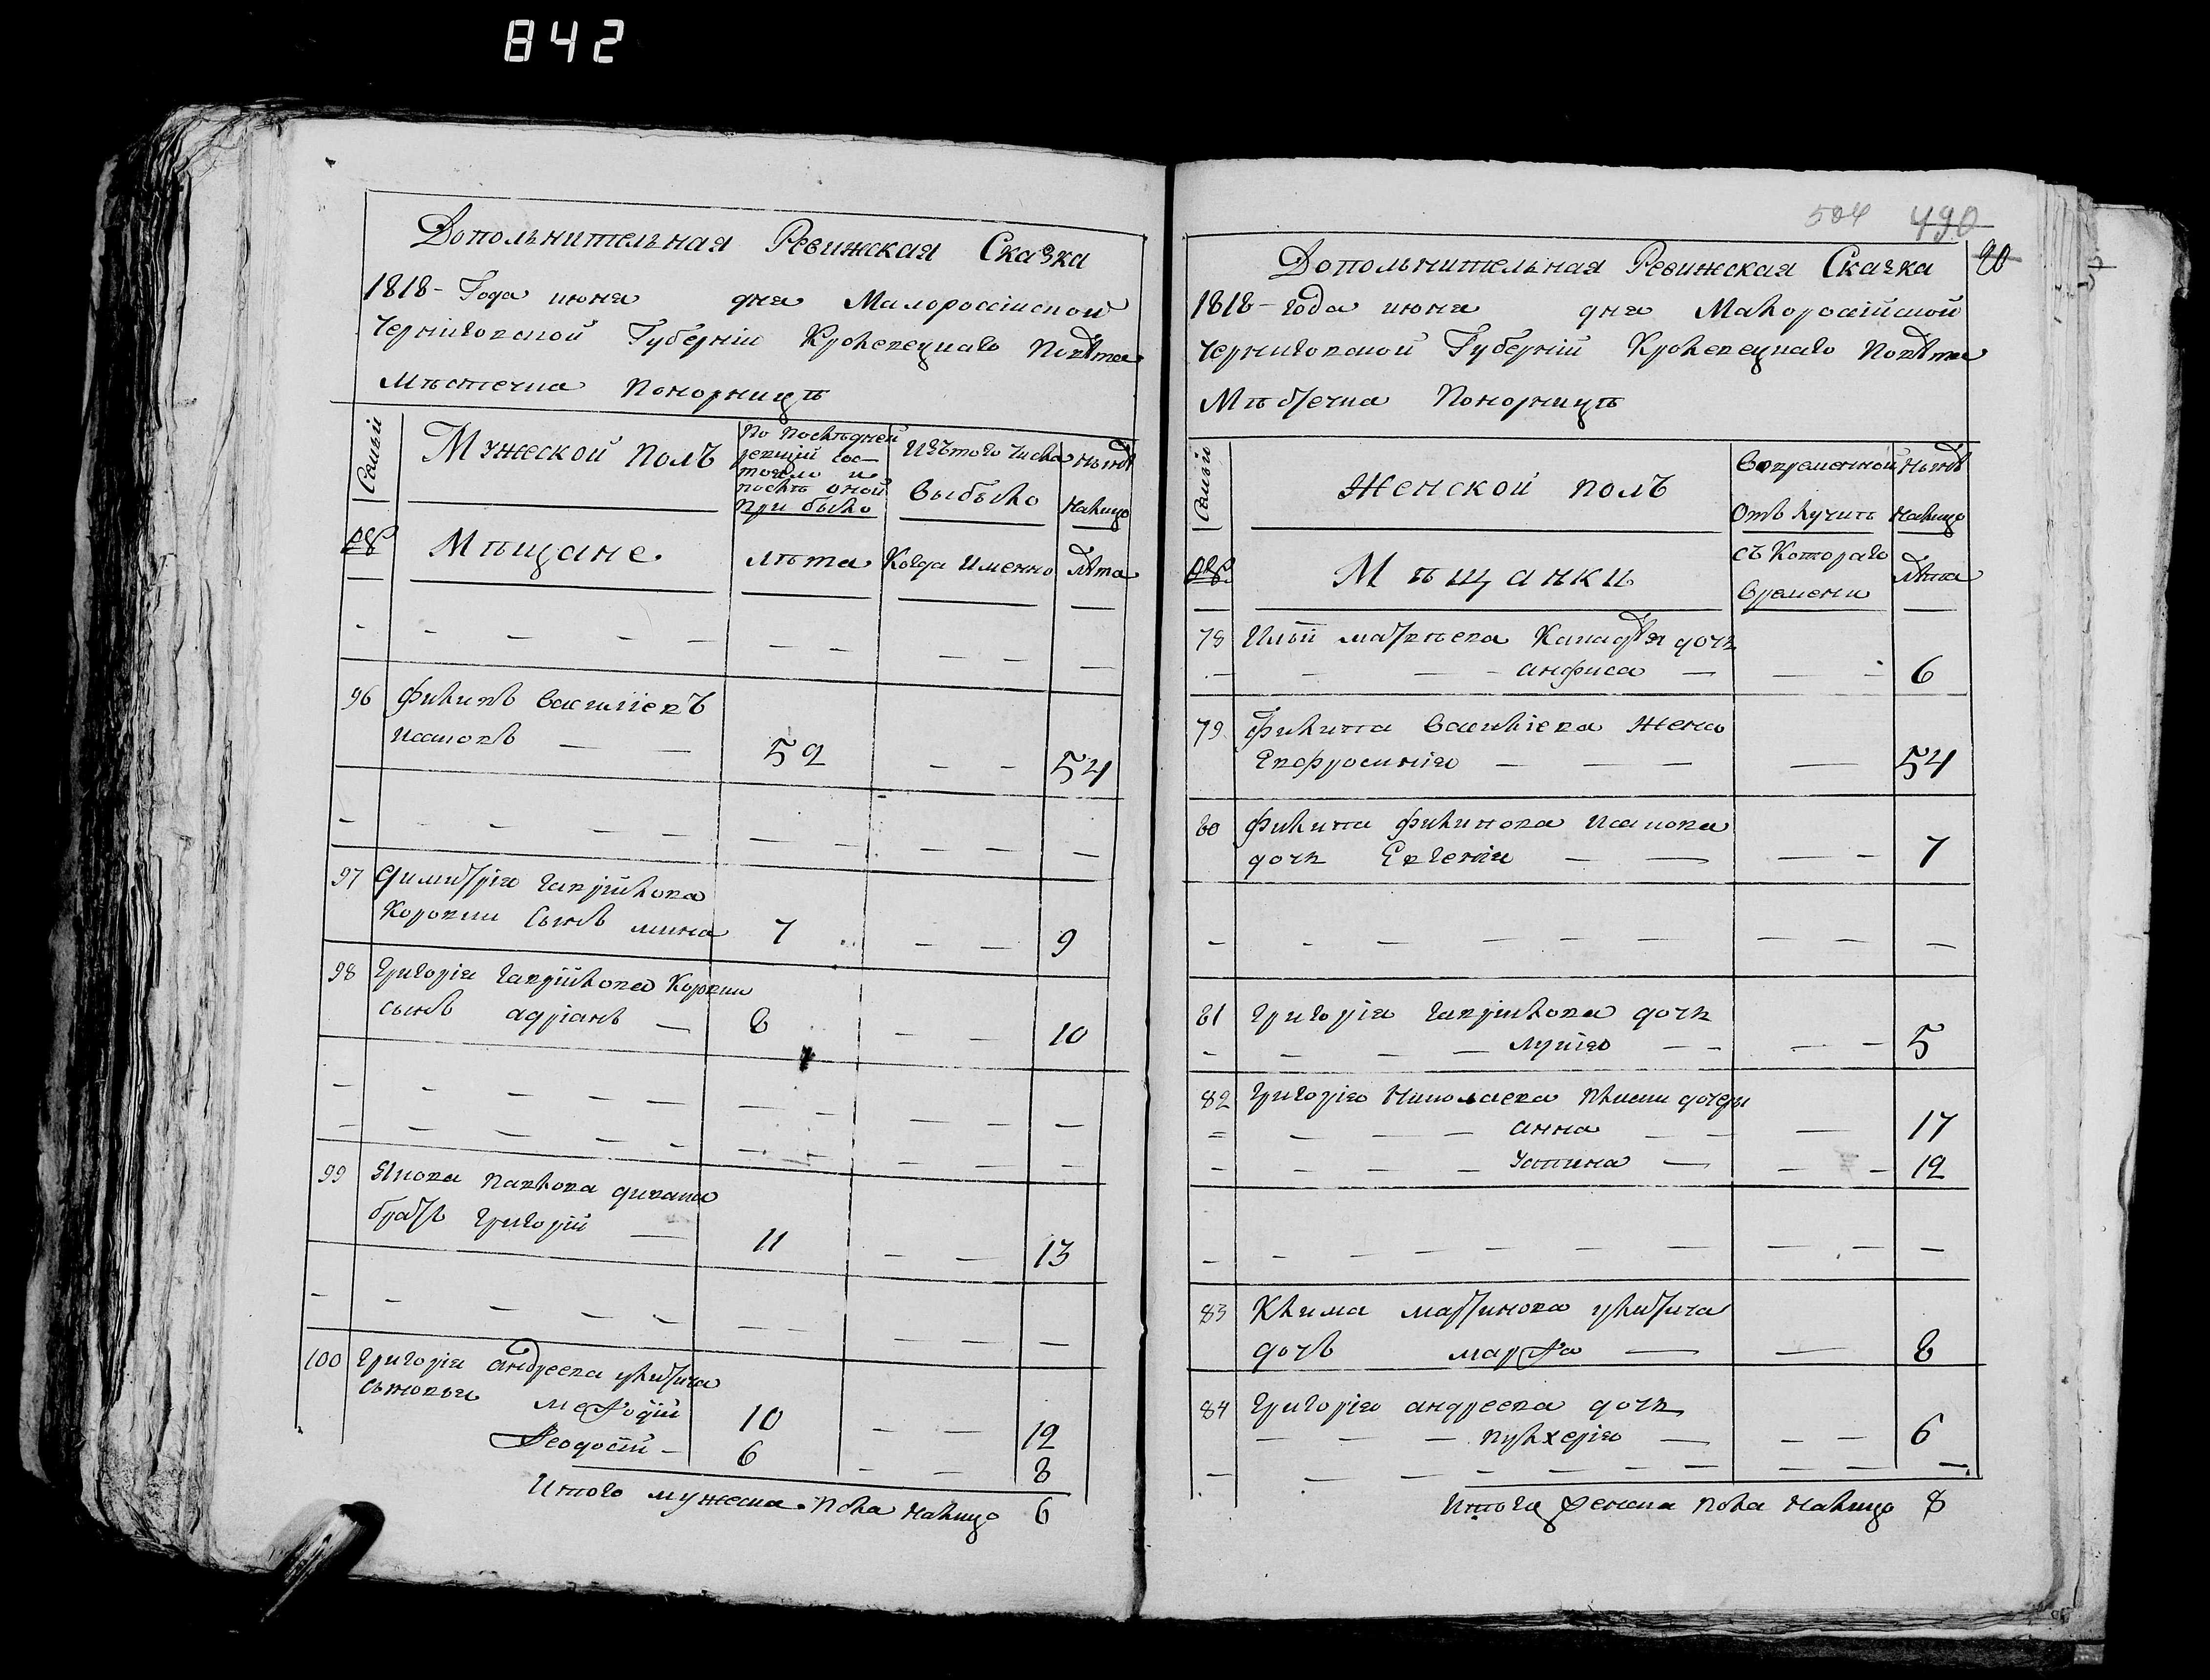 842
Дополнительная Ревижская Сказка
1818- Года июня дня Малоросiйской
Чернiговской Губернiи Кролевецкаго Повѣта
Мѣстечка Понорницѣ
Семьи
Мужеской полъ
По послѣдней
ревизiи сос-
тояло и
послѣ оной
при было
Изъ того числа
выбыло
Нынѣ
налицо
№
Мѣщане.
лѣта
Когда Именно
лѣта
96 Филипъ Василiевъ
Исаковъ 52 54
97 Димитрiя Гаврiилова
Коровки сынъ мина 7 9
98 Григорiя Гаврiилова Коровки
сынъ адрiанъ 8 10
99 Якова Павлова дикана
братъ Григорiй 11 13
100 Григорiя андреева улитича
сыновья меѳодiй 10 12
Ѳеодосiй 6 8
Итого мужеска пола налицо 6
504 490
90
Дополнительная Ревижская Сказка
1818- года июня дня Малоросiйской
Черниговской Губернiй Кролевецкаго Повѣта
Мѣстечка Понорницѣ
Семьи
Женской полъ
Вовременной
отъ лучить
Нынѣ
налицо
№
Мѣщанки
съ Котораго
времени
лѣта
78 Ильи матвѣева дочь
анфиса 6
79 Филипа Василiева жена
Евфросинiя 54
80 Филипа Филипова Исакова
дочь Евгенiи 7
81 Григорiя Гаврилова дочь
лукiя 5
82 Григорiя Николаева дочери
анна 17
Устина 12
83 Клима мартинова улитича
дочь марѳа 8
84 Григорiя андреева дочь
пулхерiя 6
Итого женска пола налицо 8